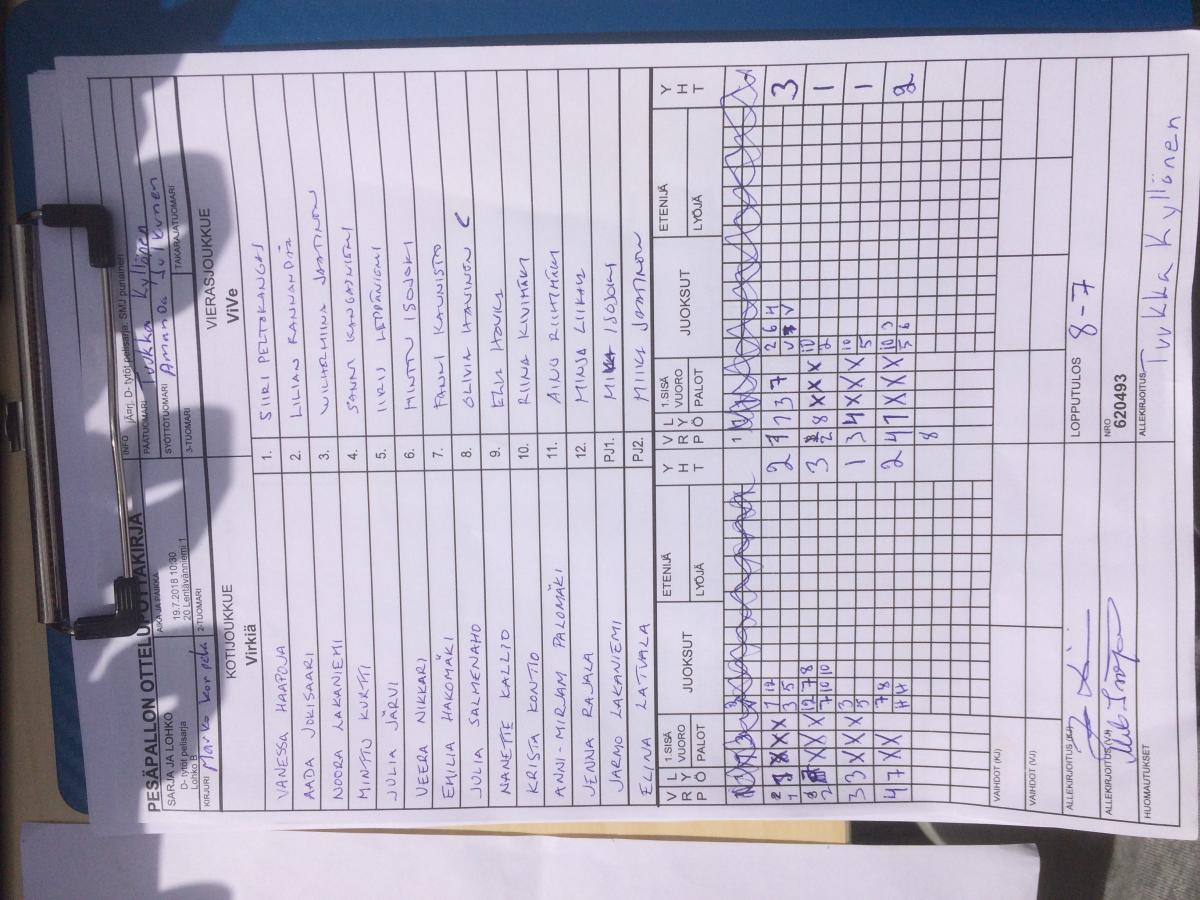 PESÄPALLON OTTELUPÖYTÄKIRJA
SARJA JA LOHKO
D- tytöt pelisarja
Lohko B
AIKA JA PAIKKA
19.7.2018 10:30
20 Lentävänniemi 1
INFO
D- tytöt pelisarja, SMJ punainen
PÄÄTUOMARI Tuukka Kyllönen
SYÖTTÖTUOMARI Amanda
KIRJURI Marko Korpela
2-TUOMARI
3-TUOMARI
TAKARAJATUOMARI
KOTIJOUKKUE
Virkiä
VIERASJOUKKUE
ViVe
VANESSA HAAPOJA 1. SIIRI PELTOKANGAS
AADA JOKISAARI 2. LILIAN RANNANPÄÄ
NOORA LAKANIEMI 3. VILHELMIINA JAATINEN
MINTTU KURTTI 4. SANNI KANGASNIEMI
JULIA JÄRVI 5. IIRIS LEPÄNIEMI
VEERA NIKKARI 6. MINTTU ISOJOKI
EMILIA HAKOMÄKI 7. FANNI KAUNISTO
JULIA SALMENAHO 8. OLIVIA HANNINEN C
NANETTE KALLIO 9.
KRISTA KONTIO 10. RIINA KIVIMÄKI
ANNI-MIRJAM PALOMÄKI 11. AINO RIIHIMÄKI
JENNA RAJALA 12. MINJA LIIKALA
JARMO LAKANIEMI PJ1. ISOJOKI
ELINA LATVALA PJ2. MIIKA JAATINEN
V R P L Y Ö 1.SISÄ VUORO PALOT JUOKSUT ETENIJÄ LYÖJÄ Y H T V R P L Y Ö 1.SISÄ VUORO PALOT JUOKSUT ETENIJÄ LYÖJÄ Y H T
1
X X 1 12 2 1 7 3 7 2 6 4 3
1 3 5
X X X 12 7 8 3 8 X X X 10 1
2 7 10 10 2 2
3 3 X X X 3 1 3 4 X X X 10 1
5 5
4 7 X X 7 8 2 4 1 X X X 10 3 2
5 6
8
VAIHDOT (KJ)
VAIHDOT (VJ)
ALLEKIRJOITUS (KJ)
LOPPUTULOS 8-7
ALLEKIRJOITUS (VJ)
NRO
620493
HUOMAUTUKSET
ALLEKIRJOITUS Tuukka Kyllönen